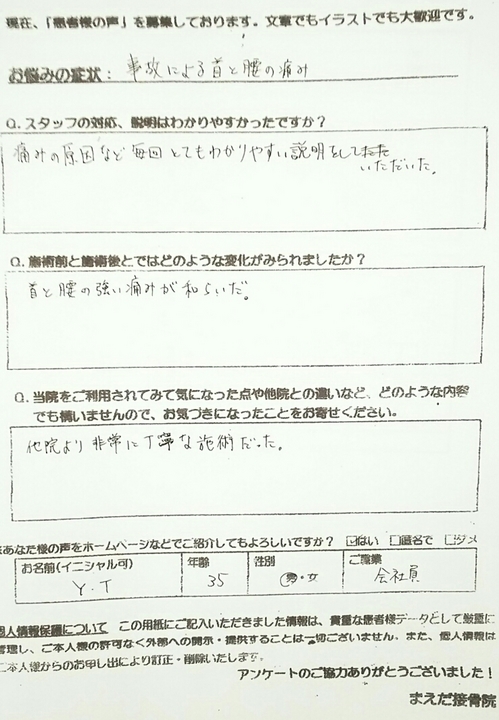 現在、「患者様の声」を募集しております。文章でもイラストでも大歓迎です。
お悩みの症状：事故による首と腰の痛み
Q.スタッフの対応、説明はわかりやすかったですか？
痛みの原因など毎回とてもわかりやすい説明をして
いただいた。
Q.施術前と施術後とではどのような変化がみられましたか？
首と腰の強い痛みが和らいだ。
Q.当院をご利用されてみて気になった点や他院との違いなど、どのような内容
でも構いませんので、お気づきになったことをお寄せください。
他院より非常に丁寧な施術だった。
あなた様の声をホームページなどでご紹介してもよろしいですか？ ☑はい □匿名で □ダメ
お名前(イニシャル可) 年齢 性別 ご職業
Y.T 35 男・女 会社員
個人情報保護について この用紙にご記入いただきました情報は、貴重な患者様データとして厳重に
管理し、ご本人様の許可なく外部への開示・提供することは一切ございません。また、個人情報は
ご本人様からのお申し出により訂正・削除いたします。
アンケートのご協力ありがとうございました！
まえだ接骨院